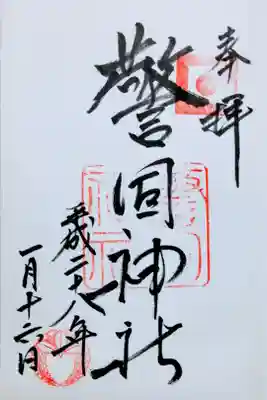 奉拝
警固神社
平成二十八年
一月十六日